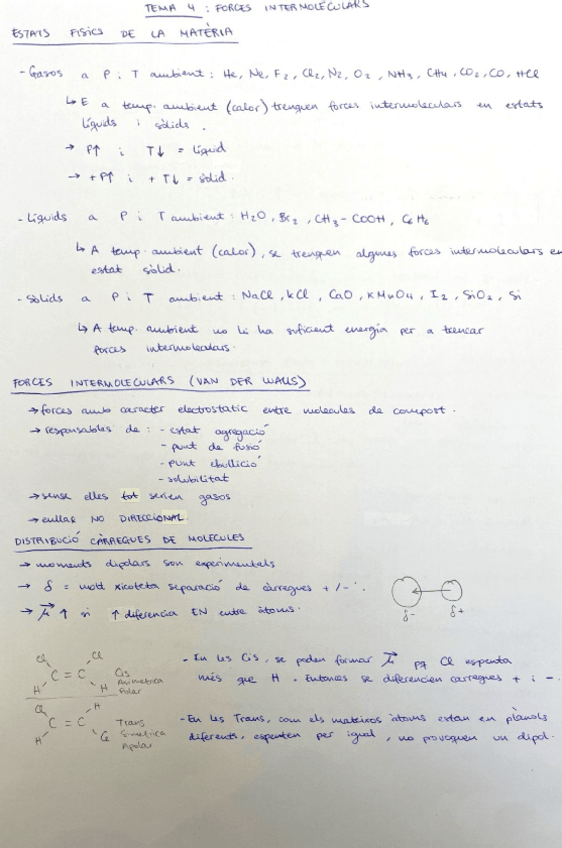 TEMA 4 : FORCES INTERMOLECULARS
ESTATS FISICS DE LA MATÈRIA
- Gasos a P i T ambient : He, Ne, F2, Cl2, N2, O2, NH3, CH4, CO2, CO, HCl
↳ E a temp. ambient (calor) trenquen forces intermoleculars en estats
líquids i sòlids.
→ P↑ i T↓ = líquid
→ +P↑ i +T↓ = sòlid.
- Líquids a P i T ambient : H2O, Br2, CH3-COOH, C6H6
↳ A temp. ambient (calor), se trenquen algunes forces intermoleculars en
estat sòlid.
- Sòlids a P i T ambient : NaCl, kCl, CaO, KMnO4, I2, SiO2, Si
↳ A temp. ambient no hi ha suficient energía per a trencar
forces intermoleculars.
FORCES INTERMOLECULARS (VAN DER WALLS)
→ forces amb caracter electrostatic entre molecules de compost.
→ responsables de : - estat agregació
- punt de fusió
- punt ebullició
- solubilitat
→ sense elles tot serien gasos
→ enllaç NO DIRECCIONAL
DISTRIBUCIÓ CÀRREGUES DE MOLECULES
→ moments dipolars son experimentals
→ δ = molt xicoteta separació de càrregues +/-.
δ- δ+
→ μ ↑ si ↑ diferencia EN entre àtoms.
Cl Cl
C = C
H H
Cis
Asimetrica
Polar
- En les Cis, se poden formar μ pq Cl espenta
més que H. Entonces se diferencien carregues + i -.
Cl H
C = C
H Cl
Trans
Simetrica
Apolar
- En les Trans, com els mateixos àtoms estan en plànols
diferents, espenten per igual, no provoquen un dipol.